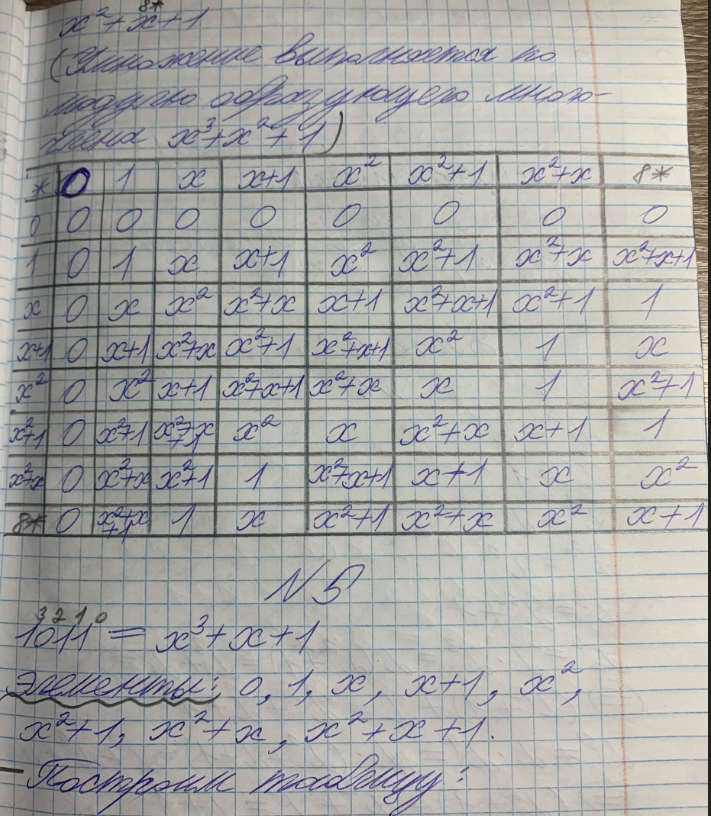 8*
x²+x+1
(Умножение выполняется по
модулю образующего много-
члена x³+x²+1)
* 0 1 x x+1 x² x²+1 x²+x 8*
0 0 0 0 0 0 0 0 0
1 0 1 x x+1 x² x²+1 x²+x x²+x+1
x 0 x x² x²+x x+1 x²+x+1 x²+1 1
x+1 0 x+1 x²+x x²+1 x²+x+1 x² 1 x
x² 0 x² x+1 x²+x+1 x²+x x 1 x²+1
x²+1 0 x²+1 x²+x+1 x² x x²+x x+1 1
x²+x 0 x²+x x²+1 1 x²+x+1 x+1 x x²
8* 0 x²+x+1 1 x x²+1 x²+x x² x+1
N5
3 2 1 0
1011 = x³+x+1
Элементы: 0, 1, x, x+1, x²,
x²+1, x²+x, x²+x+1.
– Построим таблицу: